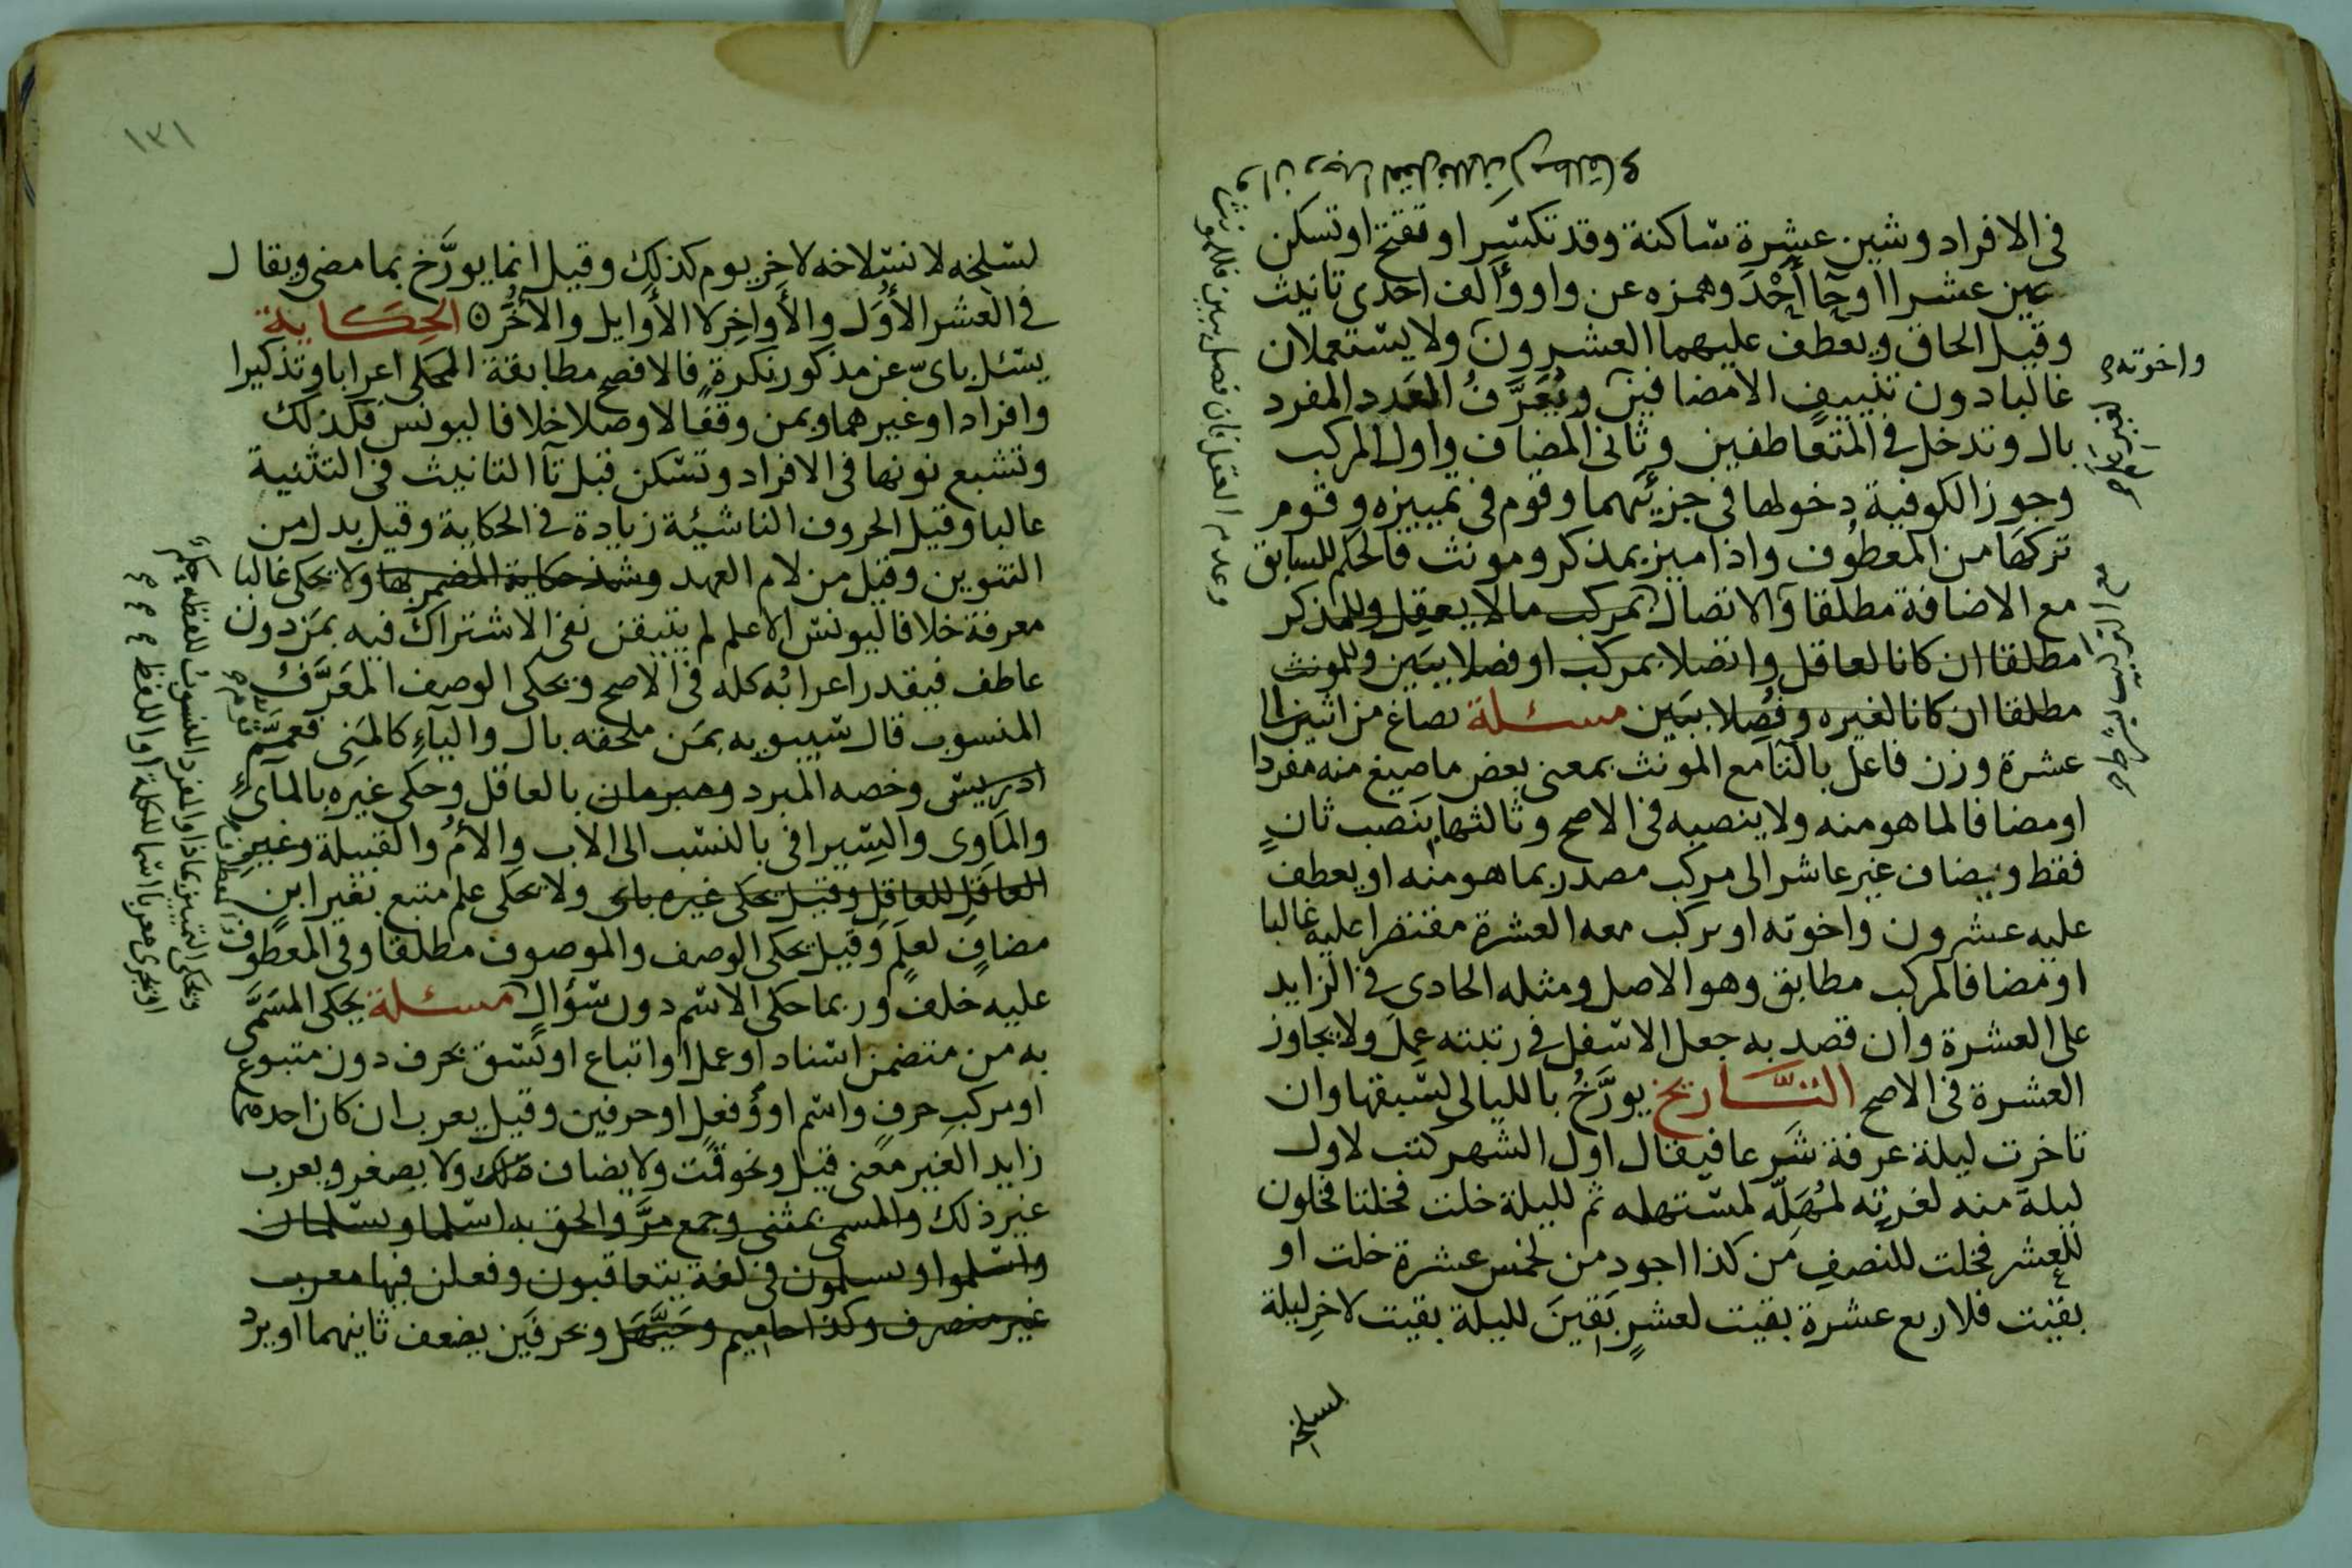 في الافراد وشين عشرة ساكنة وقد تكسر او تفتح او تسكن
عين عشر ا او حا أحد وهمزه عن واو وألف احدى تانيث
وقيل الحاق ويعطف عليهما العشرون ولا يستعملان
غالبا دون تنييف الا مضافين ويُعَرَّفُ العدد المفرد
بال وتدخل في المتعاطفين وثاني المضاف واول المركب
وجوز الكوفية دخولها في جزئيهما وقوم في تمييزه وقوم
تركها من المعطوف واذا ميز بمذكر ومونث فالحكم للسابق
مع الاضافة مطلقا والاتصال بمركب ما لا يعقل وللمذكر
مطلقا ان كانا لعاقل واتصلا بمركب او فصلا ببين وللمونث
مطلقا ان كانا لغيره وفُصِلا ببَين مسئلة يصاغ من اثنين الى
عشرة وزن فاعل بالتا مع المونث بمعنى بعض ما صيغ منه مفردا
او مضافا لما هو منه ولا ينصبه في الاصح وثالثها ينصب ثانٍ
فقط ويضاف غير عاشر الى مركب مصدر بما هو منه او يعطف
عليه عشرون واخوته او يركب معه العشرة مقتصرا عليه غالبا
او مضافا لمركب مطابق وهو الاصل ومثله الحادي في الزايد
على العشرة وان قصد به جعل الاسفل في رتبته عمل ولا يجاوز
العشرة في الاصح التاريخ يورَّخُ بالليالي لسبقها وان
تاخرت ليلة عرفة شرعا فيقال اول الشهر كتب لاول
ليلة منه لغرته لمُهَلّه لمستهله ثم لليلة خلت فخلتا فخلون
للعشر فخلت للنصف من كذا اجود من لخمس عشرة خلت او
بقيت فلاربع عشرة بقيت لعشرٍ بَقِينَ لليلة بقيت لاخر ليلة
لسلخه
واخوته
مع التركيب بشرطه
وعدم العقل فان فصل ببين فللمونث
وان وجد العقل فللمذكر مطلقا
١٣١
لسلخه لانسلاخه لاخر يوم كذلك وقيل انما يورَّخ بما مضى ويقال
في العشر الأُوَل والأواخِر لا الأوايل والأُخَر الحِكَاية
يسئل باىّ عن مذكور نكرة فالافصح مطابقة المحكي اعرابا وتذكيرا
وافرادا وغيرهما وبمن وقفا لا وصلا خلافا ليونس فكذلك
وتشبع نونها في الافراد وتسكن قبل تا التانيث في التثنية
غالبا وقيل الحروف الناشئة زيادة في الحكاية وقيل بدل من
التنوين وقيل من لام العهد وشذ حكاية المضمر بها ولا يحكى غالبا
معرفة خلافا ليونس الا علم لم يتيقن نفى الاشتراك فيه بمَن دون
عاطف فيقدر اعرابُه كله في الاصح ويحكى الوصف المعَرَّف
المنسوب قال سيبويه بمَن ملحقه بال والياءِ كالمَنِى فعمَّم
ادريس وخصه المبرد ومبرمان بالعاقل وحكى غيره بالمائى
والماوى والسيرافي بالنسب الى الاب والأم والقبيلة وغير
العاقل للعاقل وقيل يحكى غيره باى ولا يحكى علم متبع بغير ابن
مضافٍ لعلَمٍ وقيل يحكى الوصف والموصوف مطلقا وفي المعطوف
عليه خلف وربما حكى الاسم دون سؤال مسئلة يحكى المسَمَّى
به من متضمن اسناد او عمل او اتباع او نسق بحرف دون متبوع
او مركب حرفٍ واسم او وفعل او حرفين وقيل يعرب ان كان احدهما
زايد الغير معنى قيل ونحو قمت ولا يضاف ولا يصغر ويعرب
غير ذلك والمسمى بمثنى وجمع مرَّ والحق به اسلما ويسلمان
واسلموا ويسلمون في لغة يتعاقبون وفعلن فيها معرب
غير منصرف وكذا حاميم وحَيَّهَل وبحرفَين يضعف ثانيهما او يرد